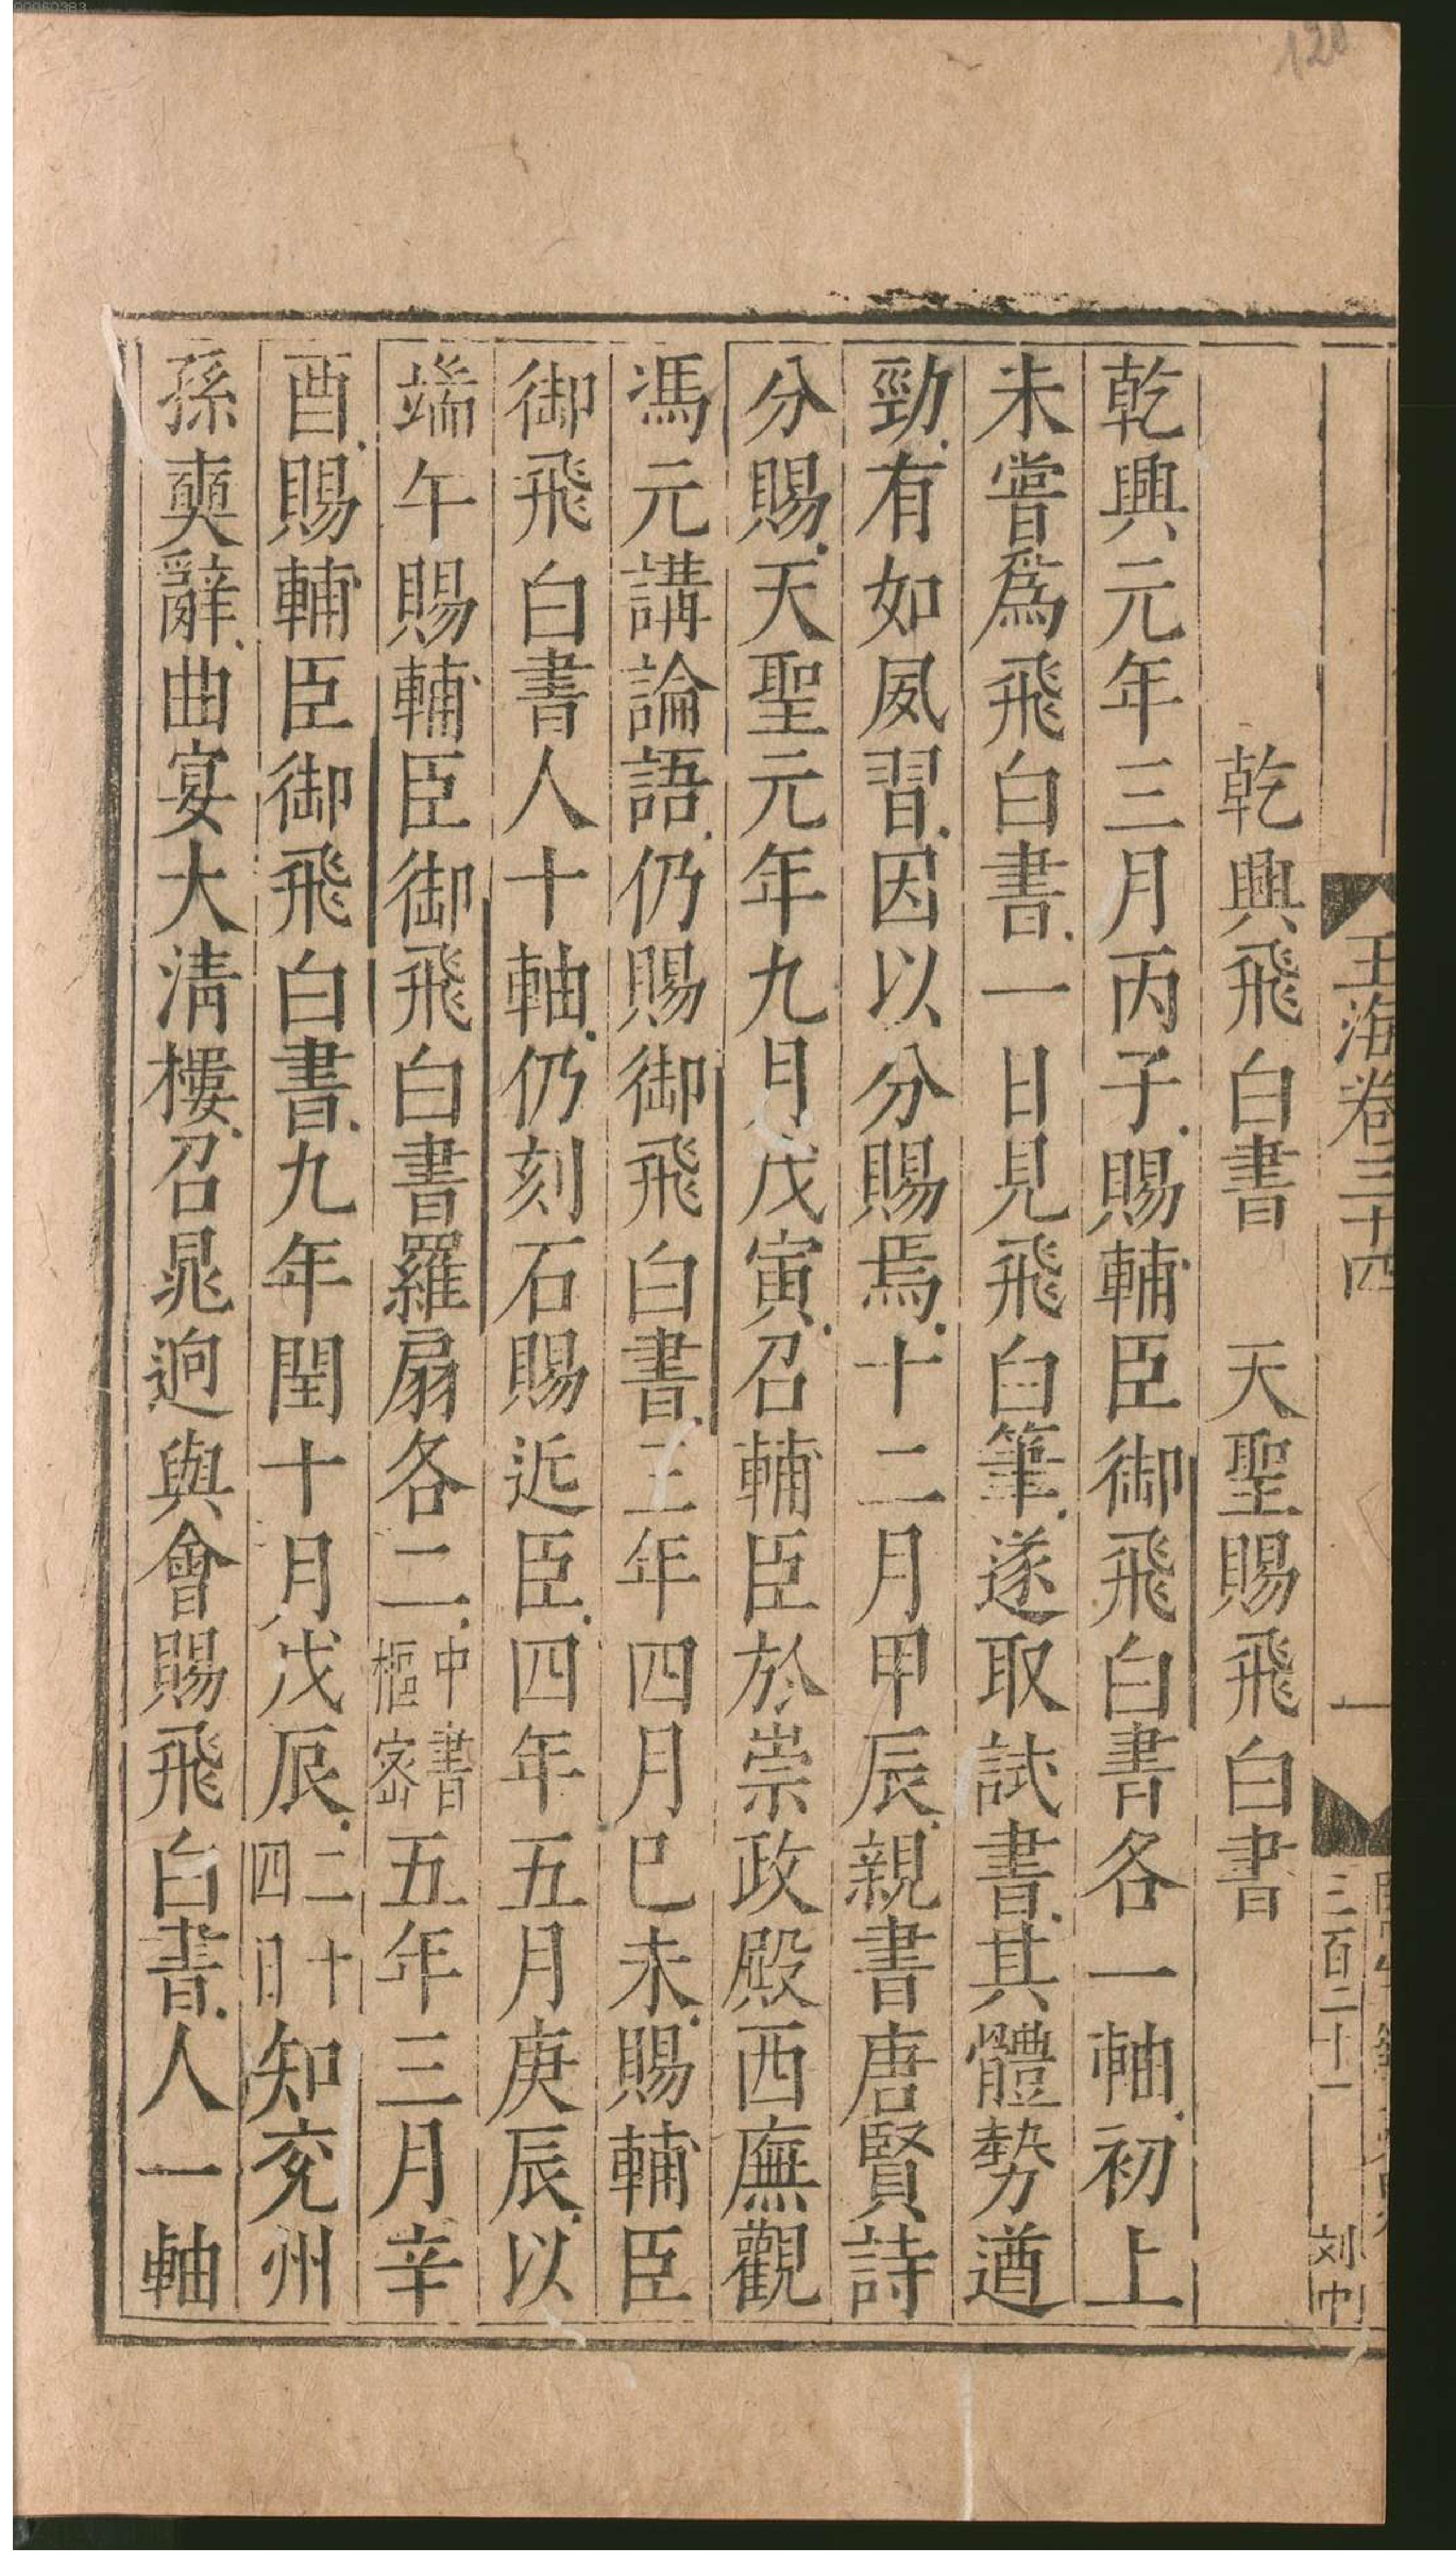 00060383
120
玉海卷三十四
一
三百二十一
刘巾
乾興飛白書　天聖賜飛白書
乾興元年三月丙子賜輔臣御飛白書各一軸初上
未嘗爲飛白書一日見飛白筆遂取試書其體勢遒
勁有如夙習因以分賜焉十二月甲辰親書唐賢詩
分賜天聖元年九月戊寅召輔臣於崇政殿西廡觀
馮元講論語仍賜御飛白書三年四月巳未賜輔臣
御飛白書人十軸仍刻石賜近臣四年五月庚辰以
端午賜輔臣御飛白書羅扇各二中書樞密五年三月辛
酉賜輔臣御飛白書九年閏十月戊辰二十四日知兖州
孫奭辭曲宴大清樓召晁逈與會賜飛白書人一軸